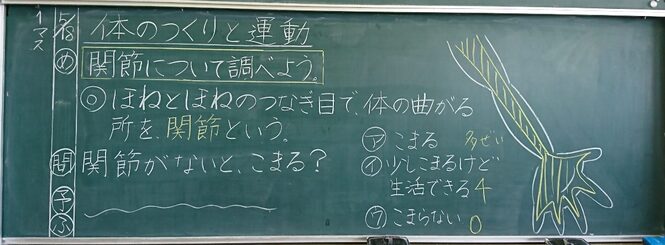 1マス
5/18 体のつくりと運動
め 関節について調べよう。
◎ ほねとほねのつなぎ目で、体の曲がる
所を、関節という。
問 関節がないと、こまる？
予
ふ
ア こまる 多ぜい
イ 少しこまるけど
生活できる 4
ウ こまらない 0